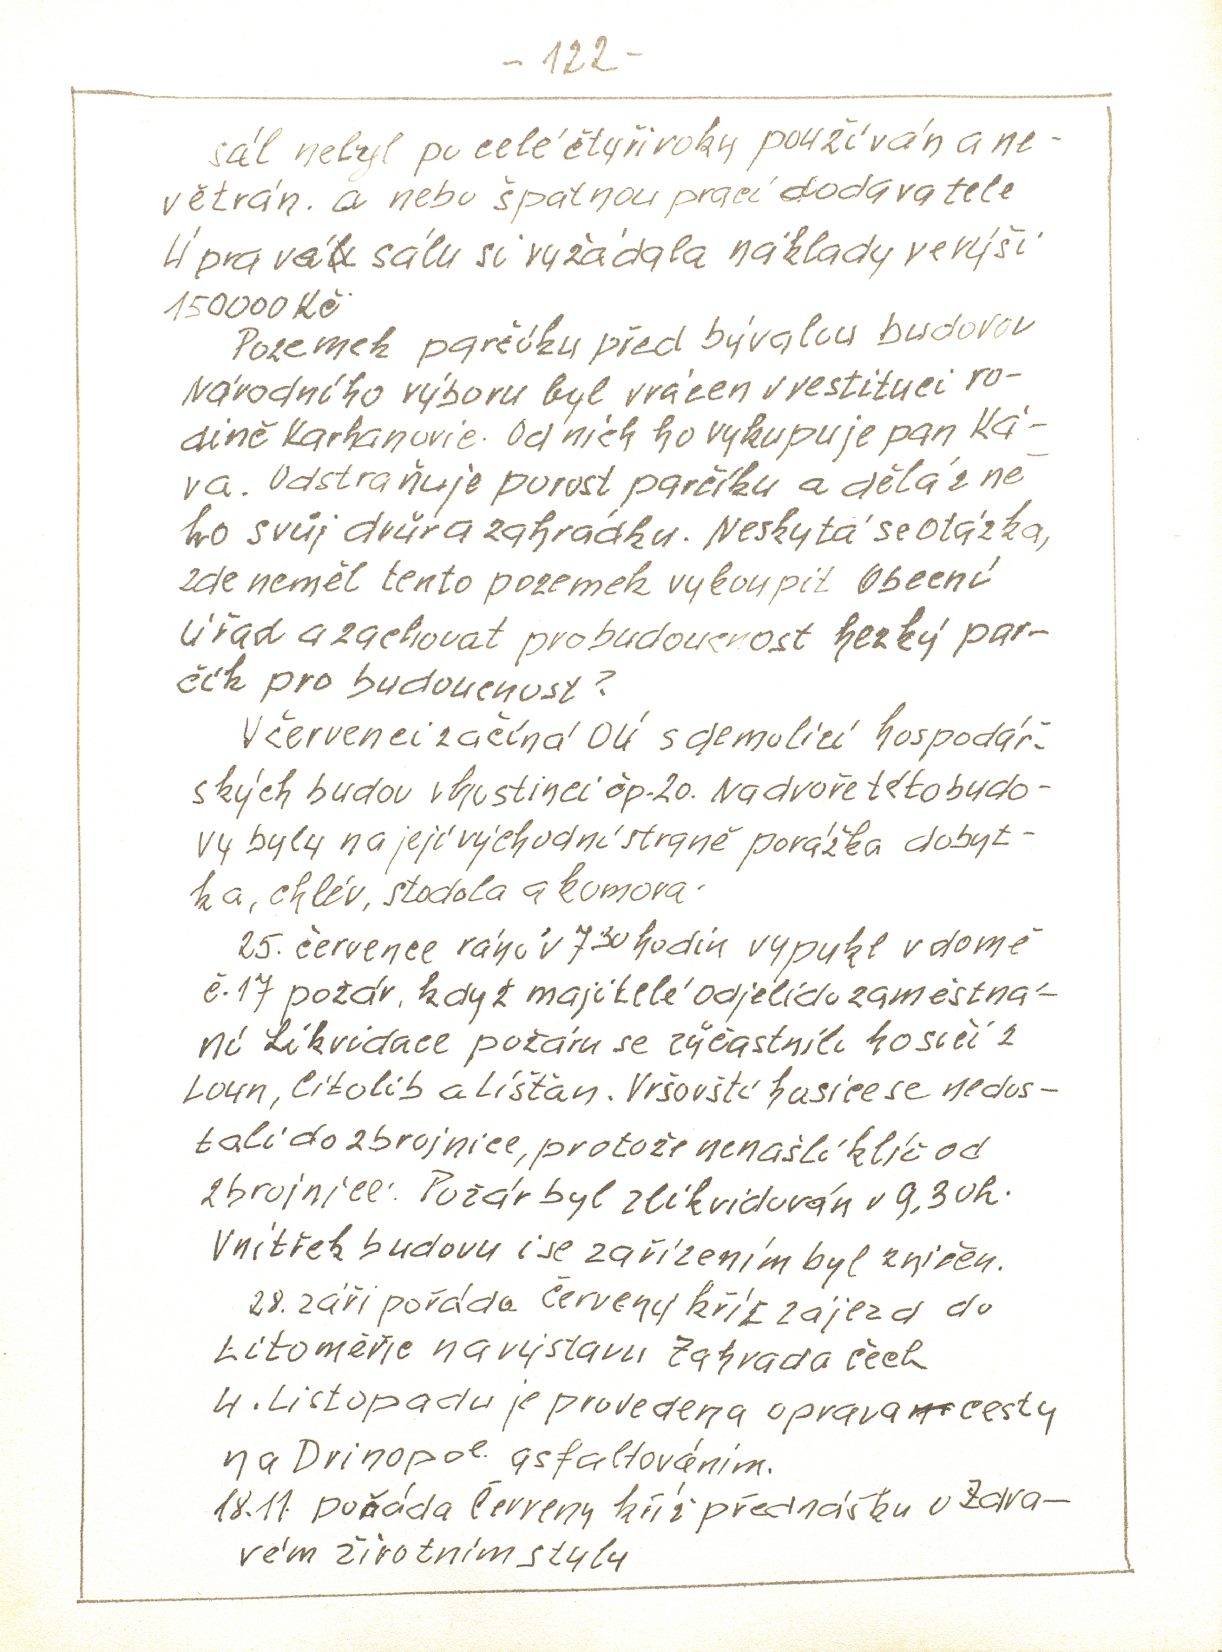 - 122 -
sál nebyl po celé čtyři roky používán a ne-
větrán. a nebo špatnou prací dodavatele
Úprava sálu si vyžádala náklady ve výši
150000 Kč
Pozemek parčíku před bývalou budovou
Národního výboru byl vrácen v restituci ro-
dině Karhanovic. Od nich ho vykupuje pan Ká-
va. Odstraňuje porost parčíku a dělá z ně
ho svůj dvůr a zahrádku. Neskytá se otázka,
zde neměl tento pozemek vykoupit Obecní
úřad a zachovat pro budoucnost hezký par-
čík pro budoucnost?
V červenci začíná OÚ s demolicí hospodář-
ských budov v hostinci čp. 20. Na dvoře této budo-
vy byly na její východní straně porážka dobyt-
ka, chlév, stodola a komora.
25. července ráno v 7 30 hodin vypukl v domě
č. 17 požár, když majitelé odjeli do zaměstná-
ní Likvidace požáru se zůčastnili hasiči z
Loun, Cítolib a Líšťan. Vršovští hasice se nedos-
tali do zbrojnice, protože nenašli klíč od
zbrojnice. Požár byl zlikvidován v 9,30h.
Vnitřek budovy i se zařízením byl zničěn.
28. září pořáda Červený kříž zájezd do
Litoměřic na výstavu Zahrada čech
4. Listopadu je provedena oprava cesty
na Drinopol. asfaltováním.
18.11. pořáda Červený kříž přednášku o Zdra-
vém životním stylu